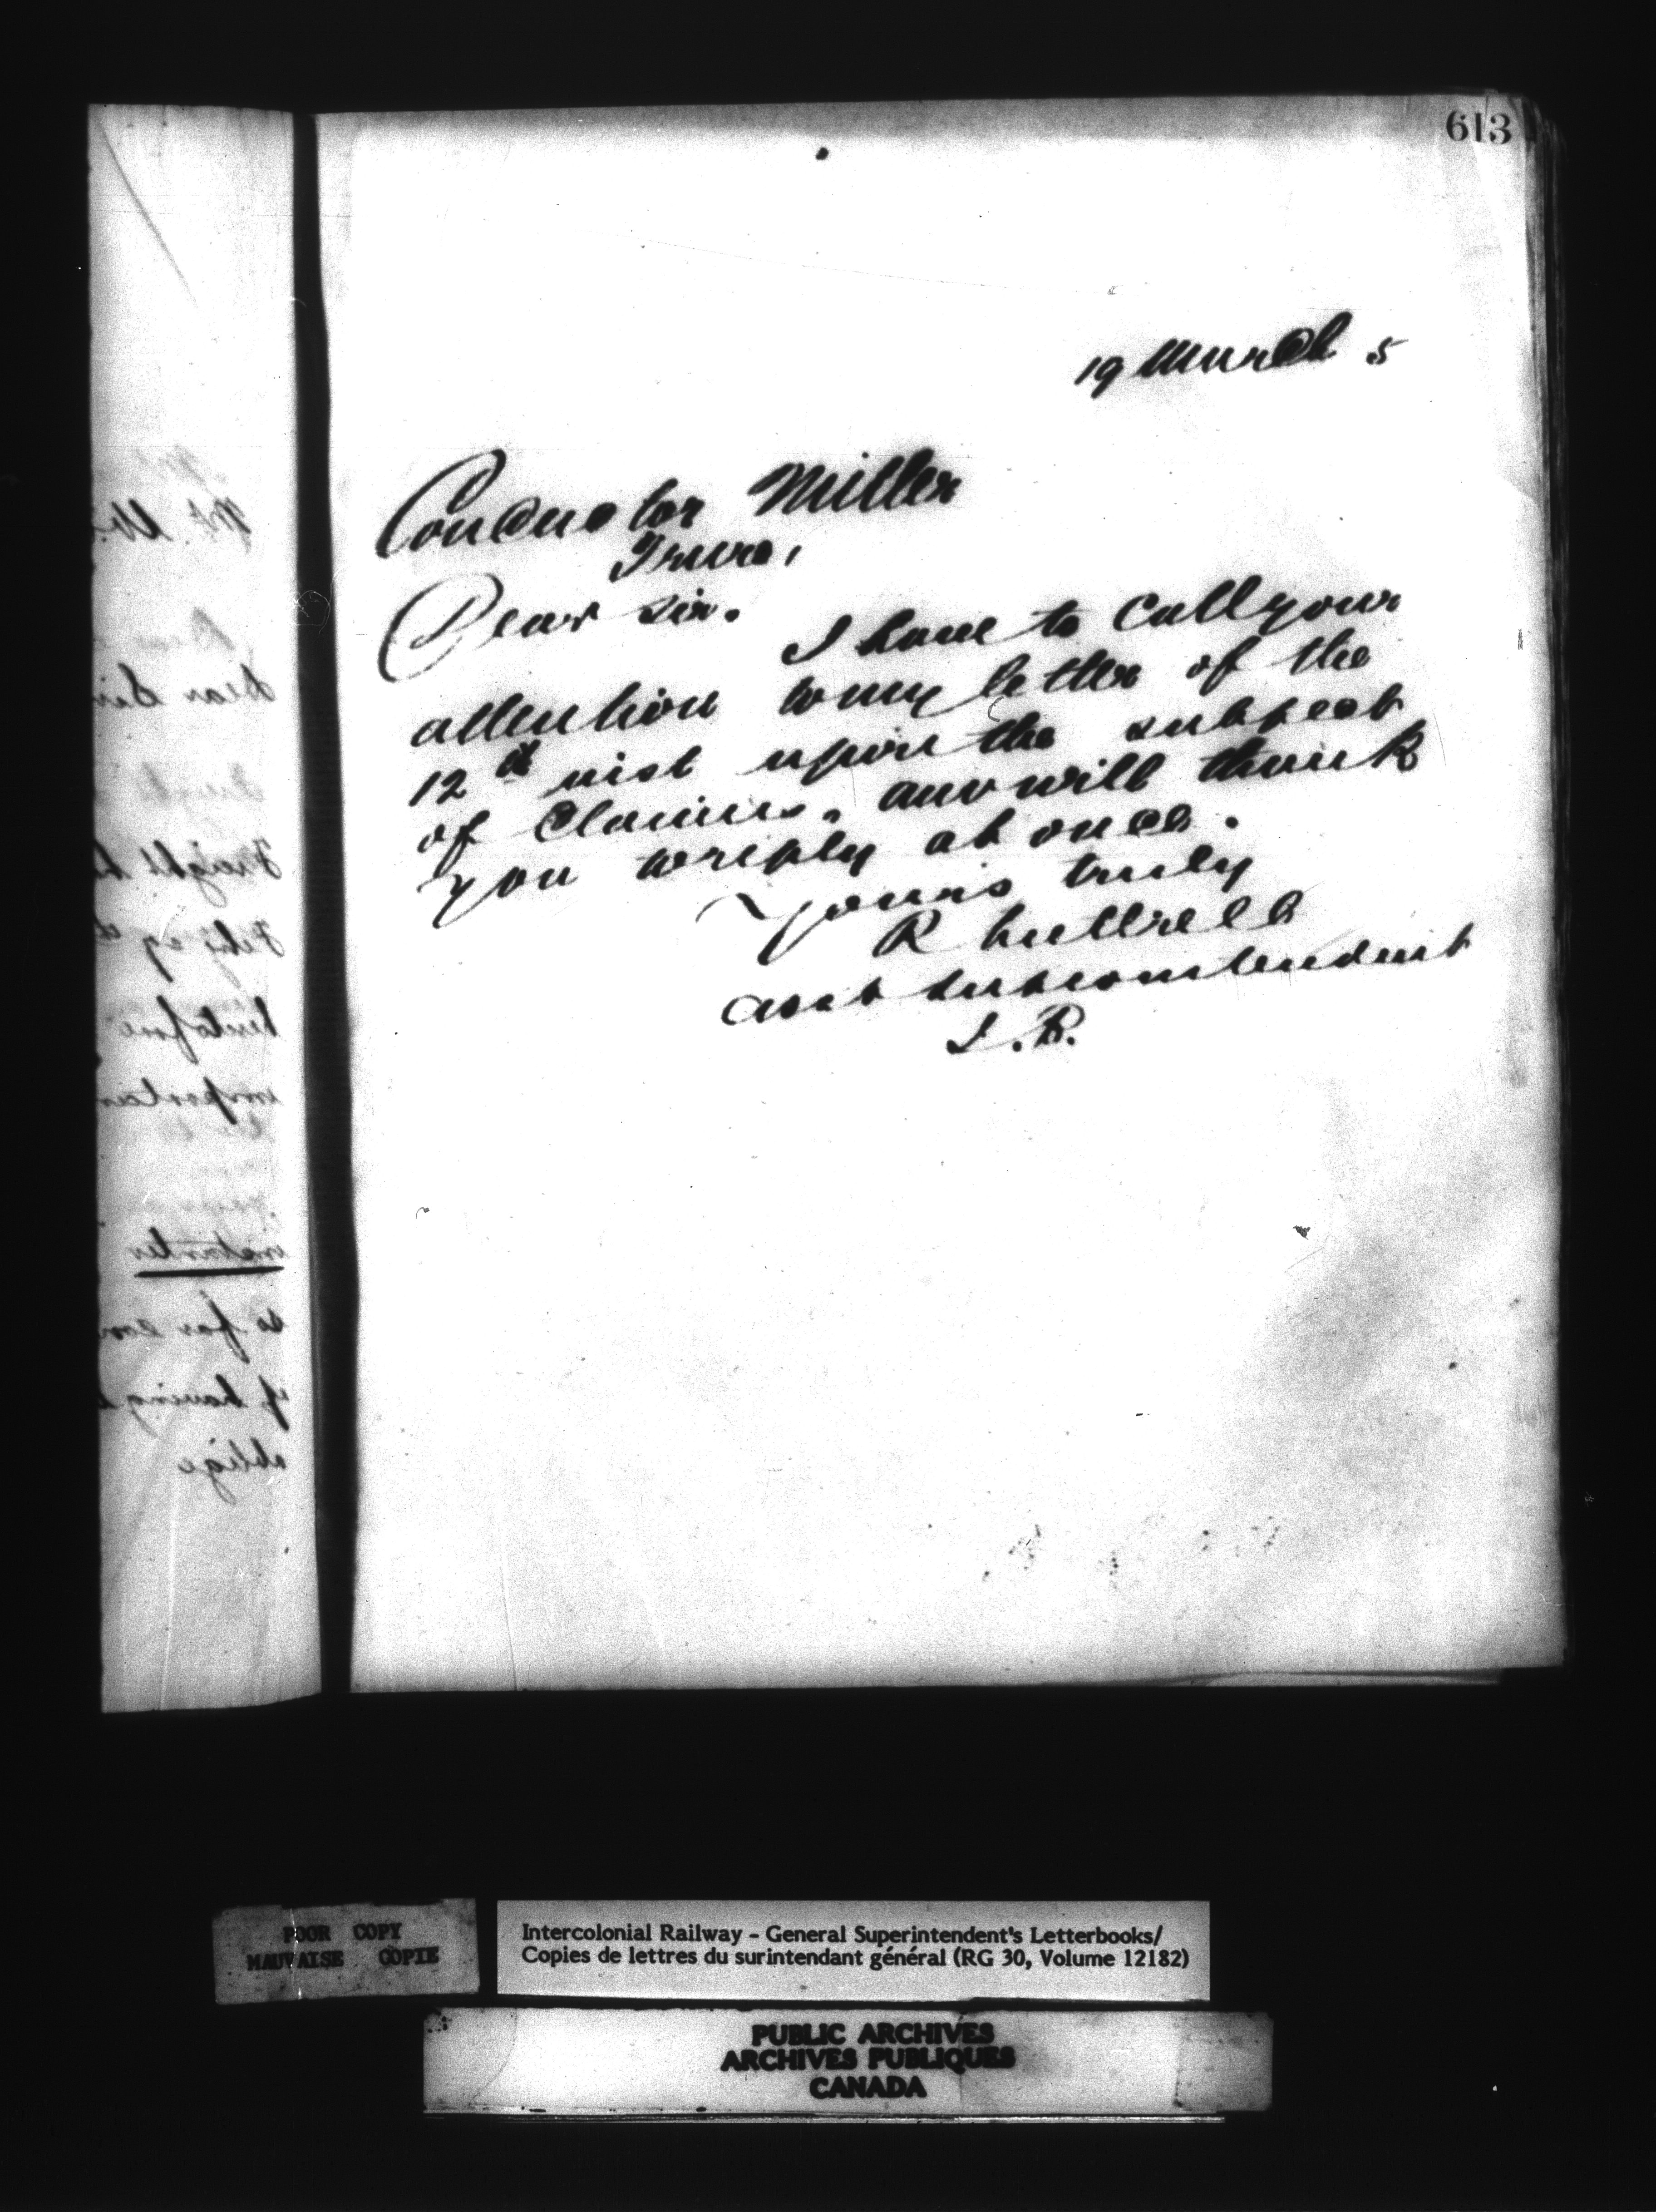 613
19 March 5
Conductor Miller
Truro,
Dear Sir.
I have to call your
attention to my letter of the
12th inst upon the subject
of Claims, and will thank
you to reply at once.
Yours truly
R Luttrell
Asst Superintendent
I.R.
Dear Sir
Freight
heretofore
importan
instanter
so far
if having
oblige
POOR COPY
MAUVAISE COPIE
Intercolonial Railway - General Superintendent's Letterbooks/
Copies de lettres du surintendant général (RG 30, Volume 12182)
PUBLIC ARCHIVES
ARCHIVES PUBLIQUES
CANADA